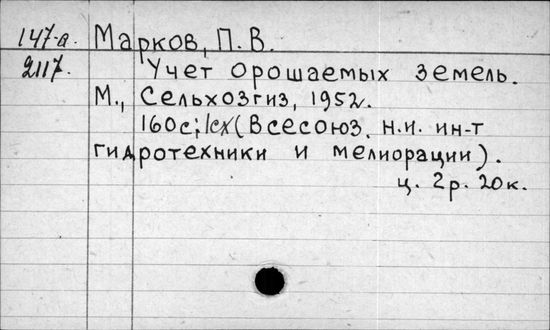 147-а. Марков, П. В.
2117. Учет орошаемых земель.
М., Сельхозгиз, 1952.
160с; 1сх (Всесоюз. н.и. ин-т
гидротехники и мелиорации).
ц. 2р. 20к.